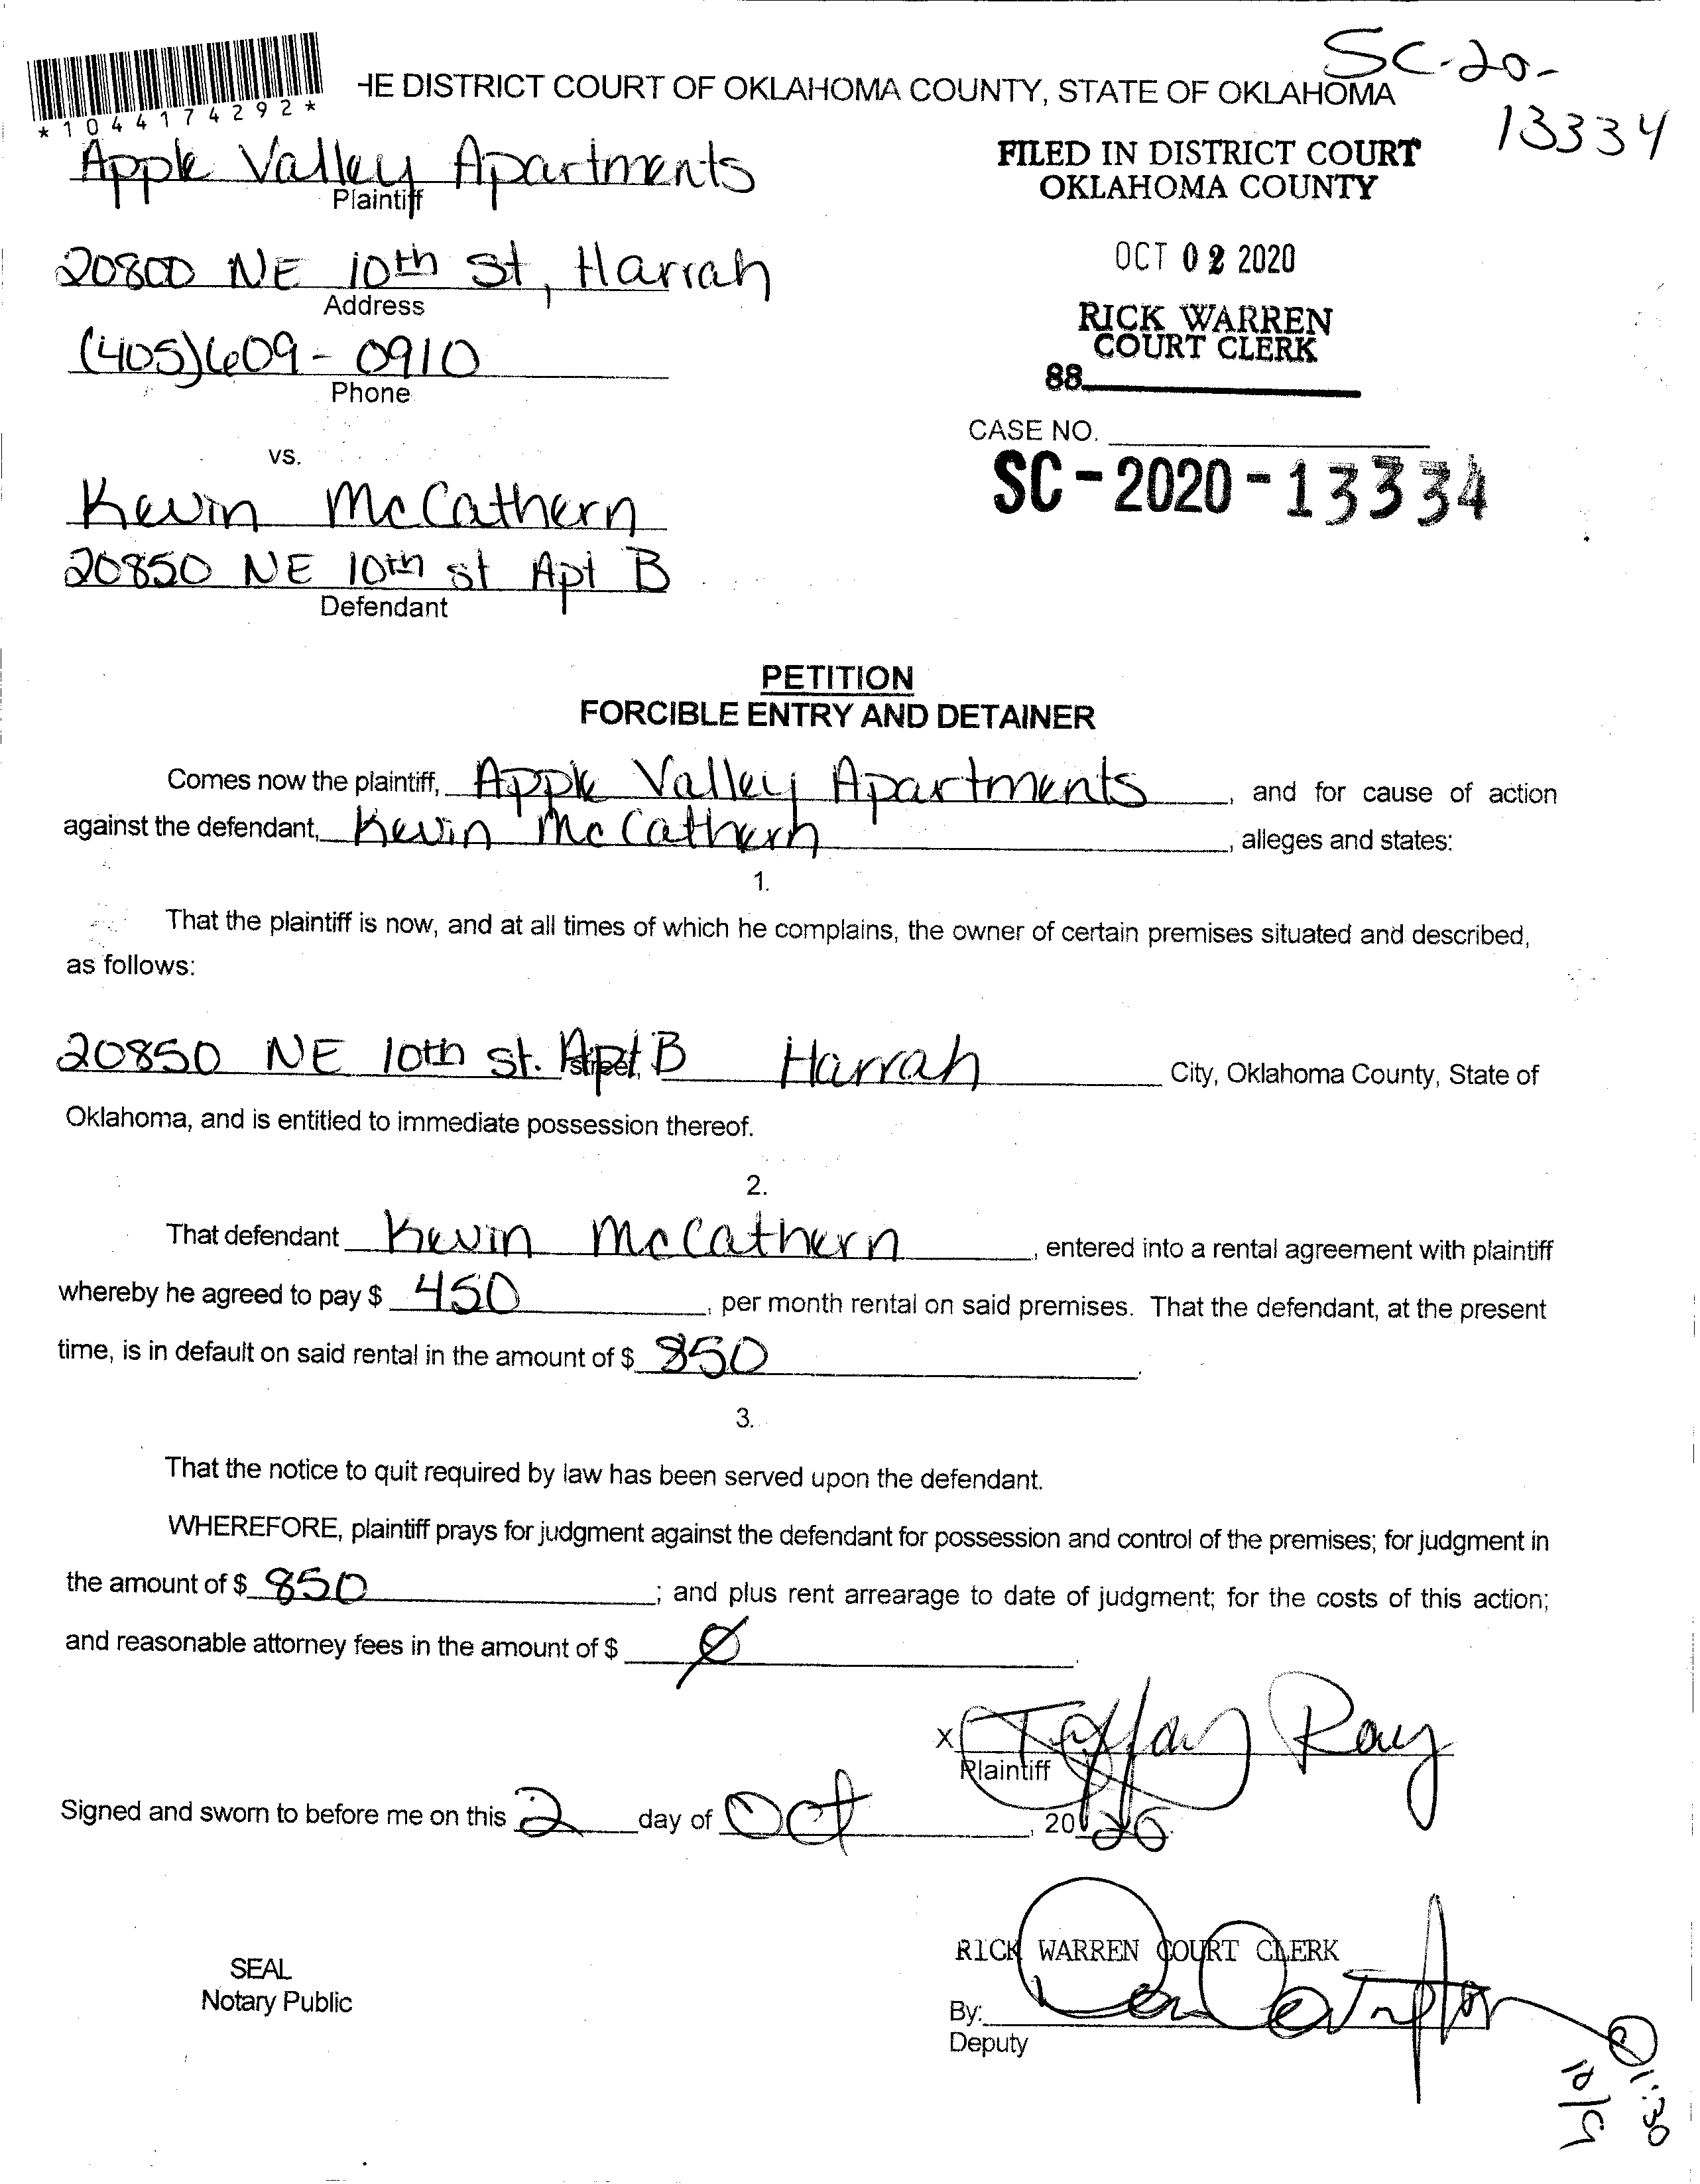 SC-20-
13334
*1044174292*
HE DISTRICT COURT OF OKLAHOMA COUNTY, STATE OF OKLAHOMA
Apple Valley Apartments
Plaintiff
20800 NE 10th St, Harrah
Address
(405)609-0910
Phone
FILED IN DISTRICT COURT
OKLAHOMA COUNTY
OCT 02 2020
RICK WARREN
COURT CLERK
88
CASE NO.
SC-2020-13334
vs.
Kevin McCathern
20850 NE 10th st Apt B
Defendant
PETITION
FORCIBLE ENTRY AND DETAINER
Comes now the plaintiff, Apple Valley Apartments, and for cause of action
against the defendant, Kevin McCathern, alleges and states:
1.
That the plaintiff is now, and at all times of which he complains, the owner of certain premises situated and described,
as follows:
20850 NE 10th St. Apt B Harrah City, Oklahoma County, State of
Oklahoma, and is entitled to immediate possession thereof.
2.
That defendant Kevin McCathern, entered into a rental agreement with plaintiff
whereby he agreed to pay $ 450, per month rental on said premises. That the defendant, at the present
time, is in default on said rental in the amount of $ 850.
3.
That the notice to quit required by law has been served upon the defendant.
WHEREFORE, plaintiff prays for judgment against the defendant for possession and control of the premises; for judgment in
the amount of $ 850; and plus rent arrearage to date of judgment; for the costs of this action;
and reasonable attorney fees in the amount of $ Ø.
x Ray
Plaintiff
Signed and sworn to before me on this 2 day of Oct, 2020.
SEAL
Notary Public
RICK WARREN COURT CLERK
By:
Deputy
1:30